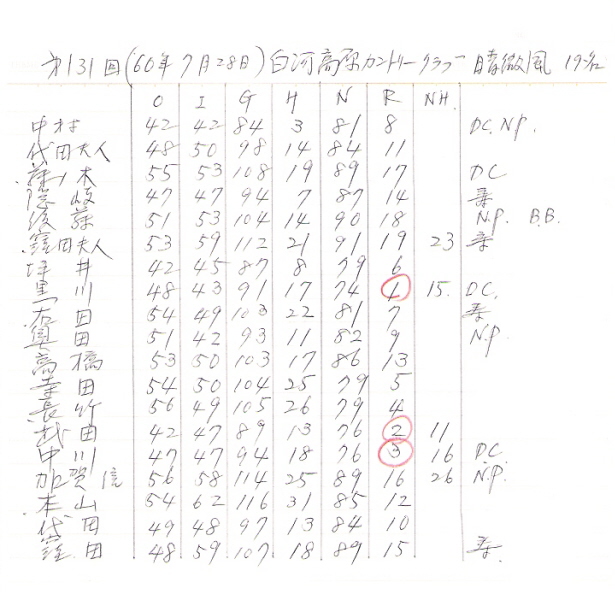 第131回(60年7月28日)白河高原カントリークラブ 晴微風 19名
O I G H N R NH.
中村 42 42 84 3 81 8 DC. N.P.
代田夫人 48 50 98 14 84 11
木 55 53 108 19 89 17 DC
隠岐 47 47 94 7 87 14
後藤 51 53 104 14 90 18 N.P. B.B.
窪田夫人 53 59 112 21 91 19 23
坪井 42 45 87 8 79 6
黒川 48 43 91 17 74 1 15. DC.
田 54 49 103 22 81 7
奥田 51 42 93 11 82 9 N.P.
高橋 53 50 103 17 86 13
田 54 50 104 25 79 5
長竹 56 49 105 26 79 4
我田 42 47 89 13 76 2 11
中川 47 47 94 18 76 3 16 DC
加賀 信 56 58 114 25 89 16 26 N.P.
本山 54 62 116 31 85 12
代田 49 48 97 13 84 10
窪田 48 59 107 18 89 15